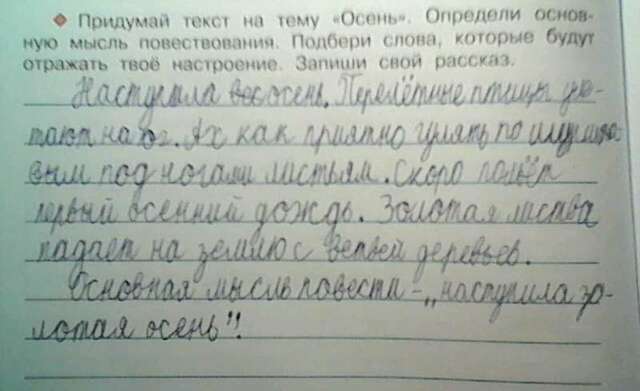 ◆ Придумай текст на тему «Осень». Определи основ-
ную мысль повествования. Подбери слова, которые будут
отражать твоё настроение. Запиши свой рассказ.
Наступила осень. Перелётные птицы уле-
тают на юг. Ах как приятно гулять по
вым под ногами листьям. Скоро польёт
первый осенний дождь. Золотая листва
падает на землю с ветвей деревьев.
Основная мысль повести - „наступила зо-
лотая осень"!